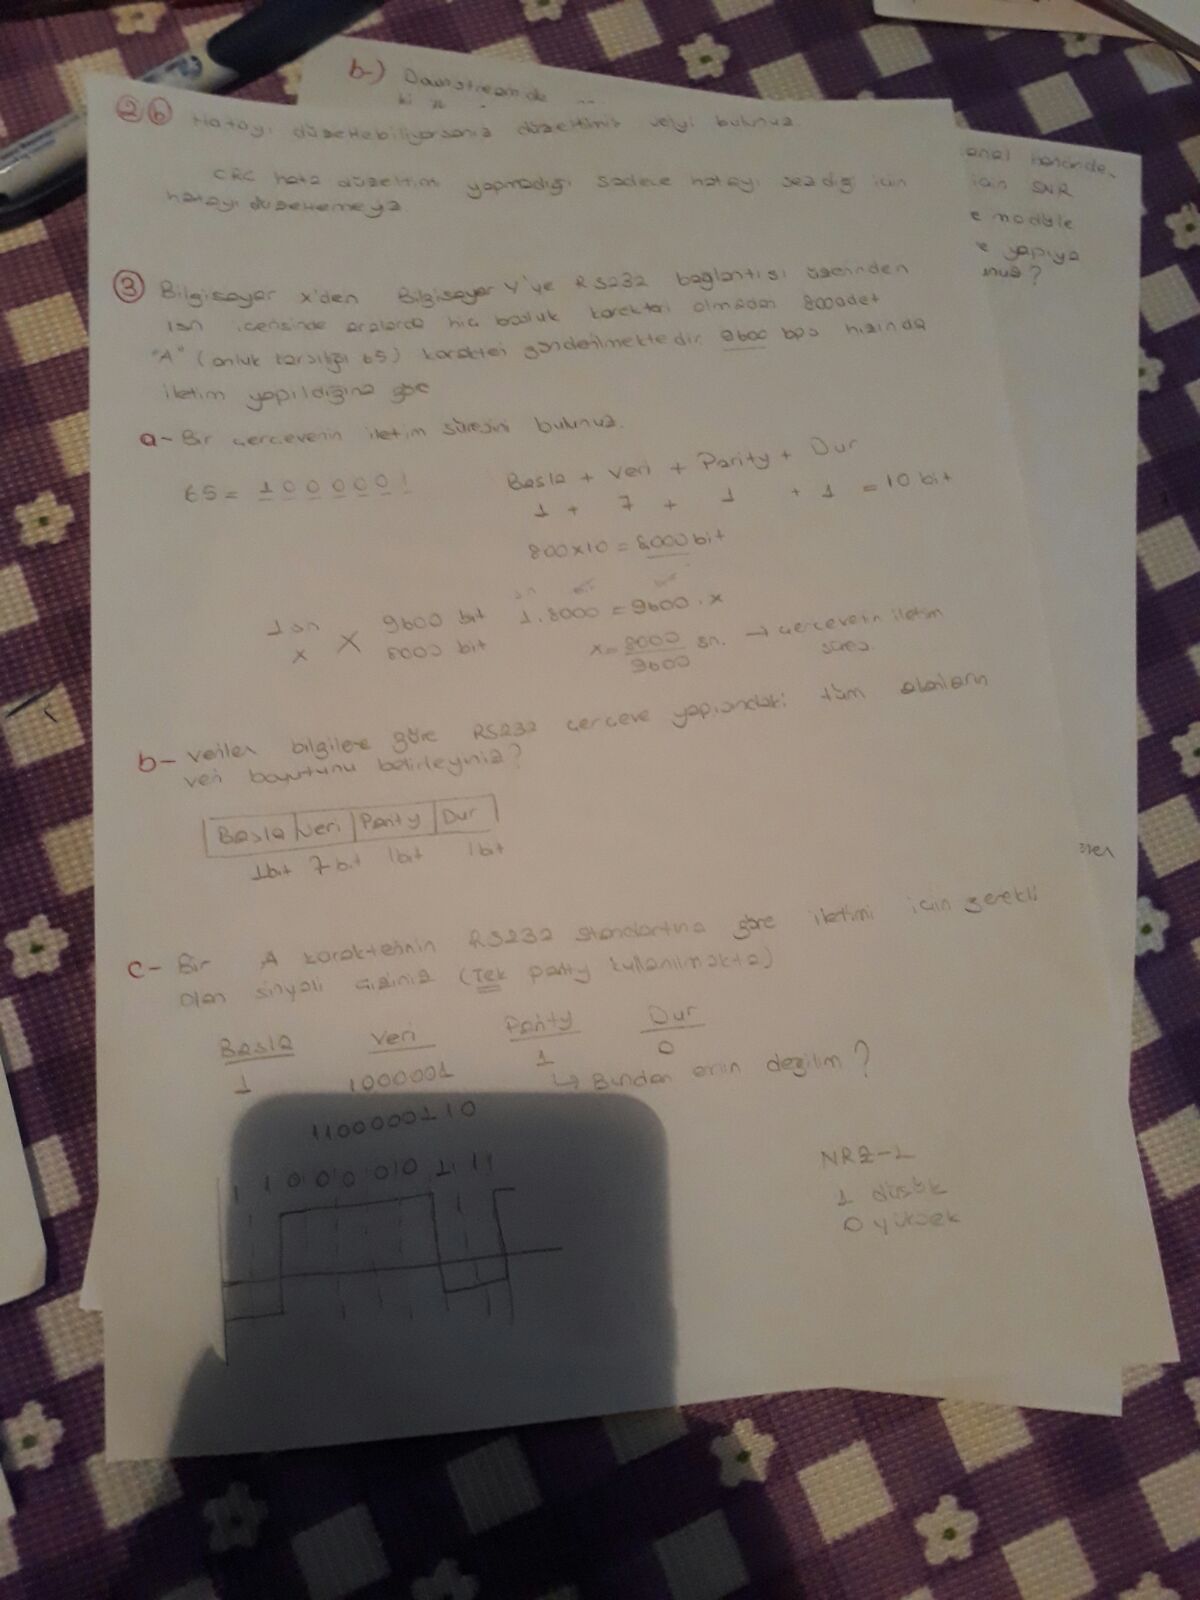 b-) Downstream de
2 b Hatayı düzeltebiliyorsanız düzeltilmiş veriyi bulunuz.
CRC hata düzeltim yapmadığı sadece hatayı sezdiği için
hatayı düzeltemeyiz.
anal
için SNR
e modüle
e yapıya
nuz?
3 Bilgisayar X'den Bilgisayar Y'ye RS232 bağlantısı üzerinden
1sn içerisinde aralarda hiç boşluk karakteri olmadan 800 adet
"A" (onluk karşılığı 65) karakteri gönderilmektedir. 9600 bps hızında
iletim yapıldığına göre
a- Bir çerçevenin iletim süresini bulunuz.
65 = 1000001
Başla + Veri + Parity + Dur
1 + 7 + 1 + 1 = 10 bit
800x10 = 8000 bit
1 sn 9600 bit 1.8000 = 9600.x
x 8000 bit
x = 8000/9600 sn. → çerçevenin iletim
süresi.
b- Verilen bilgilere göre RS232 çerçeve yapısındaki tüm alanların
veri boyutunu belirleyiniz?
Başla Veri Parity Dur
1bit 7 bit 1bit 1bit
c- Bir A karakterinin RS232 standartına göre iletimi için gerekli
olan sinyali çiziniz (Tek parity kullanılmakta)
Başla Veri Parity Dur
1 1000001 1 0
↳ Bundan emin değilim?
1100000110
1 1 0 0 0 0 0 1 1 1
NRZ-L
1 düşük
0 yüksek